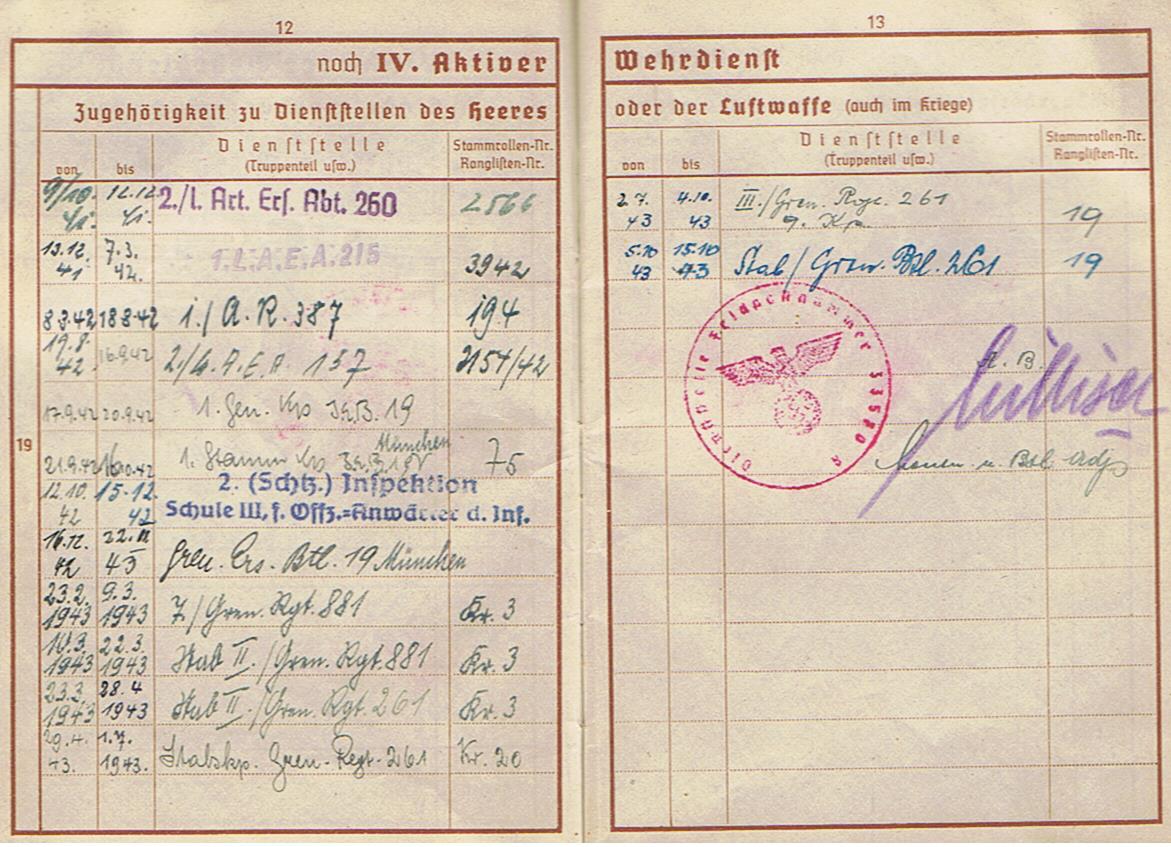 12
noch IV. Aktiver
Zugehörigkeit zu Dienststellen des Heeres
von bis Dienststelle (Truppenteil usw.) Stammrollen-Nr. Ranglisten-Nr.
9/10. 41. 12.12. 41. 2./l. Art. Ers. Abt. 260 2566
13.12. 41 7.3. 42. 1.L.A.E.A.215 3942
8.3.42 18.8.42 1./A.R.387 194
19.8. 42. 16.9.42 2/ A.E.A 157 2154/42
17.9.42 20.9.42 1. Gen. Kp 19
21.9.42 42 1. Stamm München 75
12.10. 42 15.12. 42 2. (Schtz.) Inspektion
Schule III, f. Offz.=Anwärter d. Inf.
16.12. 42 22. 43 Gren. Ers. Btl. 19 München
23.2. 1943 9.3. 1943 7/Gren. Rgt. 881 Kr. 3
10.3. 1943 22.3. 1943 Stab II./Gren. Rgt. 881 Kr. 3
23.3. 1943 28.4 1943 Stab II/Gren. Rgt. 261 Kr. 3
29.4. 43. 1.7. 1943. Stabskp. Gren.-Regt. 261 Kr. 20
19
13
Wehrdienst
oder der Luftwaffe (auch im Kriege)
von bis Dienststelle (Truppenteil usw.) Stammrollen-Nr. Ranglisten-Nr.
2.7. 43 4.10. 43 III./Gren. Rgt. 261 9. Kp. 19
5.10 43 15.10 43 Stab/Gren. Btl. 261 19
Dienststelle Feldpostnummer